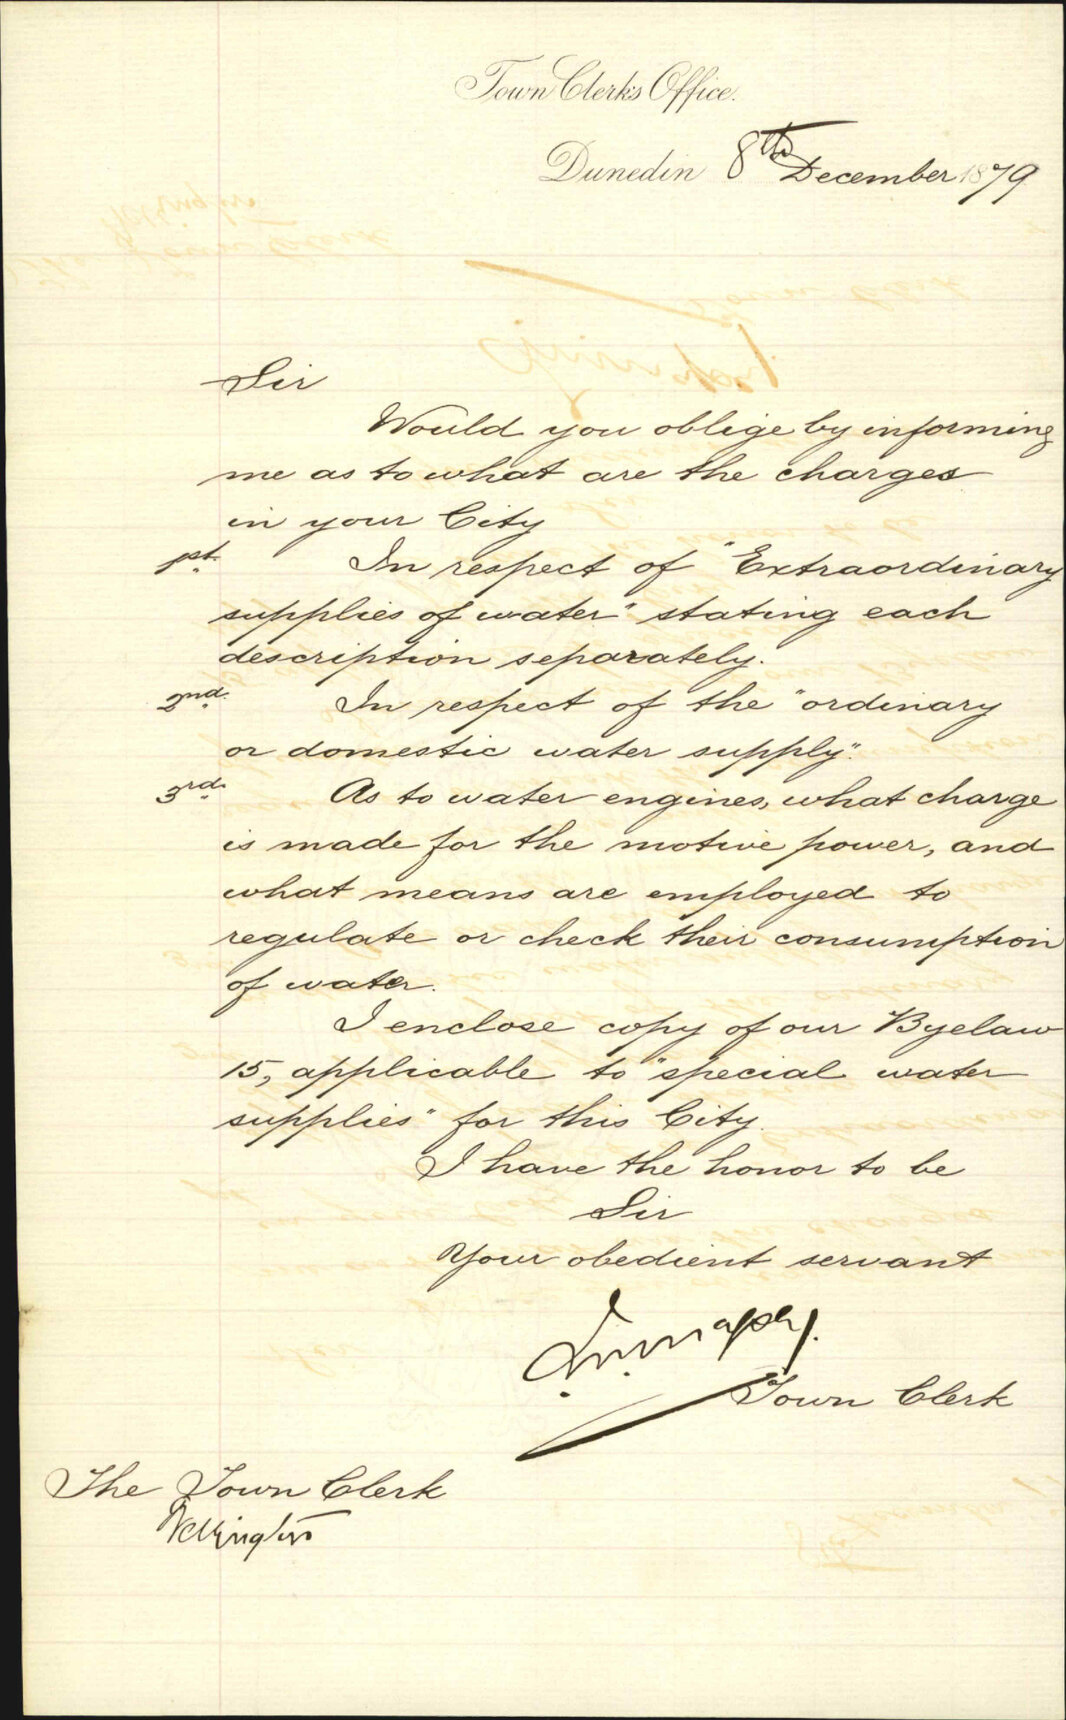 Town Clerks Office.
Dunedin 8th December 1879
Sir
Would you oblige by informing
me as to what are the charges
in your City
1st. In respect of "Extraordinary
supplies of water" stating each
description separately.
2nd. In respect of the "ordinary
or domestic water supply".
3rd. As to water engines, what charge
is made for the motive power, and
what means are employed to
regulate or check their consumption
of water.
I enclose copy of our Byelaw
15, applicable to "special water
supplies" for this City.
I have the honor to be
Sir
Your obedient servant
Town Clerk
The Town Clerk
Wellington